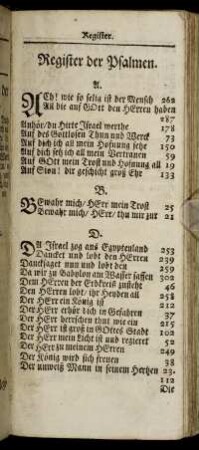 Register.
Register der Psalmen.
A.
ACh! wie so selig ist der Mensch 262
All die auf GOtt den HErren haben
287
Anhör/ du Hirte Israel werthe 178
Auf des Gottlosen Thun und Werck 73
Auf dich ich all mein Hofnung setze 150
Auf dich setz ich all mein Vertrauen 59
Auf GOtt mein Trost und Hofnung all 19
Auf Sion! dir geschicht groß Ehr 133
B.
BEwahr mich/ HErr mein Trost 25
Bewahr mich/ HErr/ thu mir zur 21
D.
DA Israel zog aus Egyptenland 253
Dancket und lobt den HErren 239
Dancksaget nun und lobt den 259
Da wir zu Babylon am Wasser sassen 302
Dem HErren der Erdkreis zusteht 46
Den HErren lobt/ ihr Heyden all 258
Der HErr ein König ist
Der HErr erhör euch in Gefahren 37
Der HErr herrschen thut wie ein 215
Der HErr ist groß in GOttes Stadt 102
Der HErr mein Licht ist und regiert 52
Der HErr zu meinem HErren 249
Der König wird sich freuen 38
Der unweiß Mann in seinem Hertzen 23.
112
Die